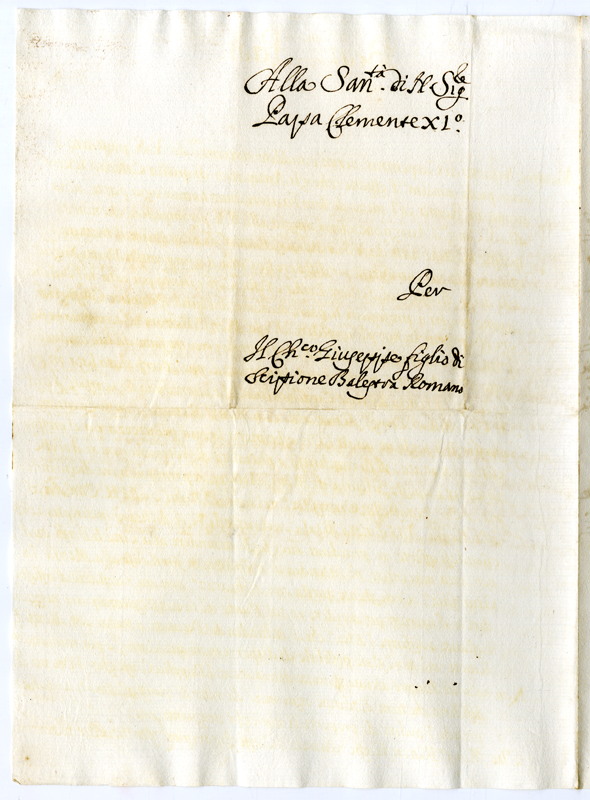 Alla San.tà di N. Sig.re
Papa Clemente XI.o
Per
Il Ch.co Giuseppe figlio di
Scipione Balestra Romano